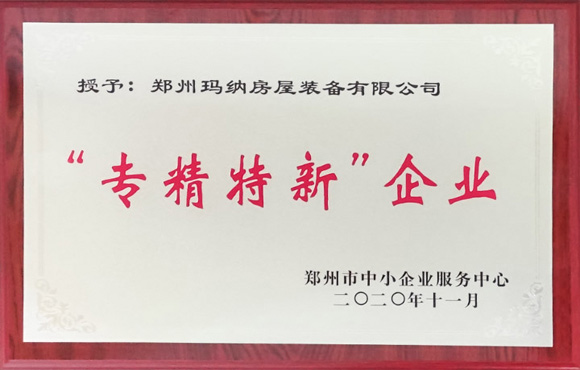 授予：郑州玛纳房屋装备有限公司
“专精特新”企业
郑州市中小企业服务中心
二〇二〇年十一月